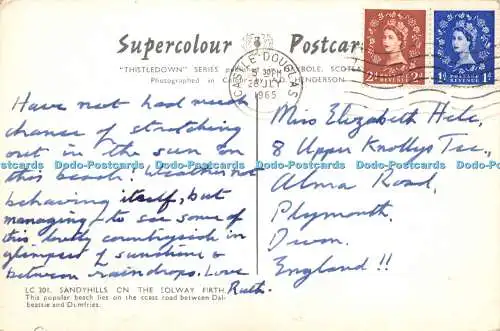 Supercolour Postcar
"THISTLEDOWN" SERIES P BOLE, SCOTL
Photographed in C ENDERSON
CASTLE DOUGLAS
5 30PM
28 JLY
1965
2d POSTAGE REVENUE 2d
1d POSTAGE REVENUE 1d
Have not had much
chance of stretching
out in the sun on
this beach. Weather not
behaving itself, but
managing to see some of
this lovely countryside in
glimpses of sunshine &
between raindrops. Love
Ruth.
Miss Elizabeth
8 Upper Knollys Tce.,
Alma Road,
Plymouth.
Devon.
England!!
Dodo-Postcards Dodo-Postcards Dodo-Postcards Dodo-Postcards Dodo-Postcards
LC 201. SANDYHILLS ON THE SOLWAY FIRTH.
This popular beach lies on the coast road between Dal-
beattie and Dumfries.